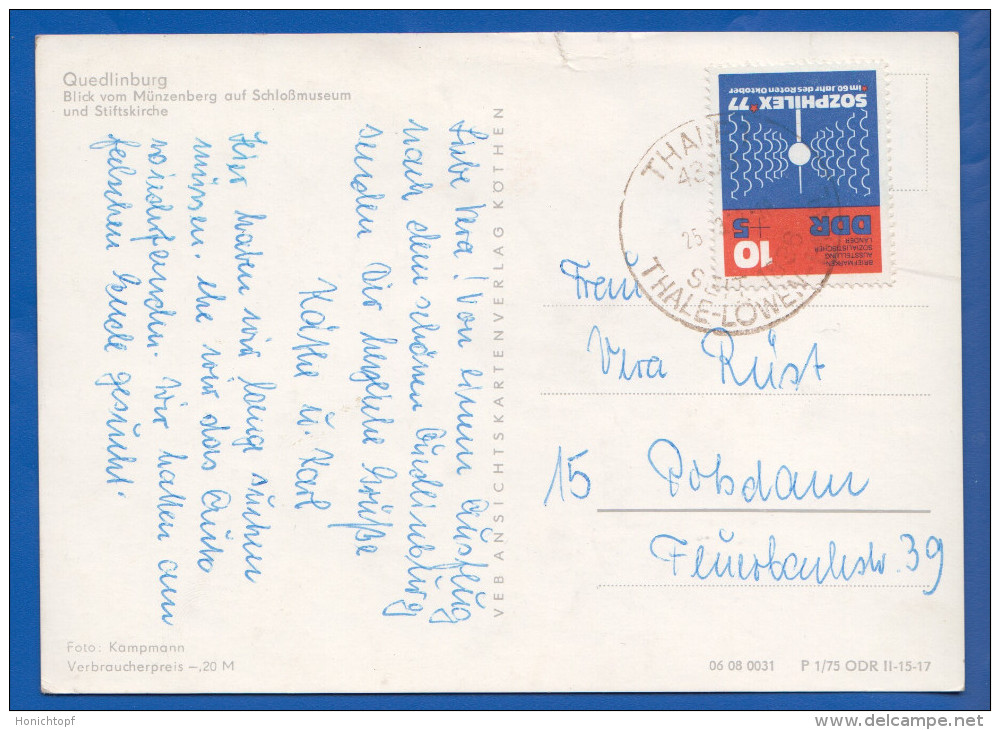 Quedlinburg
Blick vom Münzenberg auf Schloßmuseum
und Stiftskirche
Liebe Vera! Von einem Ausflug
nach dem schönen Quedlinburg
senden Dir herzliche Grüße
Käthe u. Karl
Hier haben wir lange suchen
müssen, ehe wir das Auto
wiederfanden. Wir hatten am
falschen Ende gesucht.
VEB ANSICHTSKARTENVERLAG KÖTHEN
SOZPHILEX '77
im 60. Jahr des Roten Oktober
DDR
10
+5
BRIEFMARKEN-
AUSSTELLUNG
SOZIALISTISCHER
LÄNDER
THALE
25
THALE-LÖWEN
Frau
Vera Rüst
15 Potsdam
Feuerbachstr. 39
Foto: Kampmann
Verbraucherpreis –,20 M
06 08 0031 P 1/75 ODR II-15-17
Honichtopf
delcampe.net